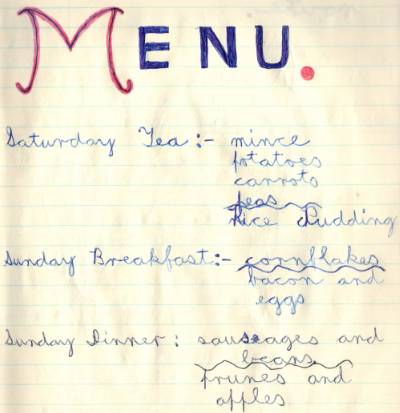 MENU.
Saturday Tea :- mince
potatoes
carrots
peas
Rice Pudding
Sunday Breakfast:- cornflakes
bacon and
eggs
Sunday Dinner: sausages and
beans
prunes and
apples